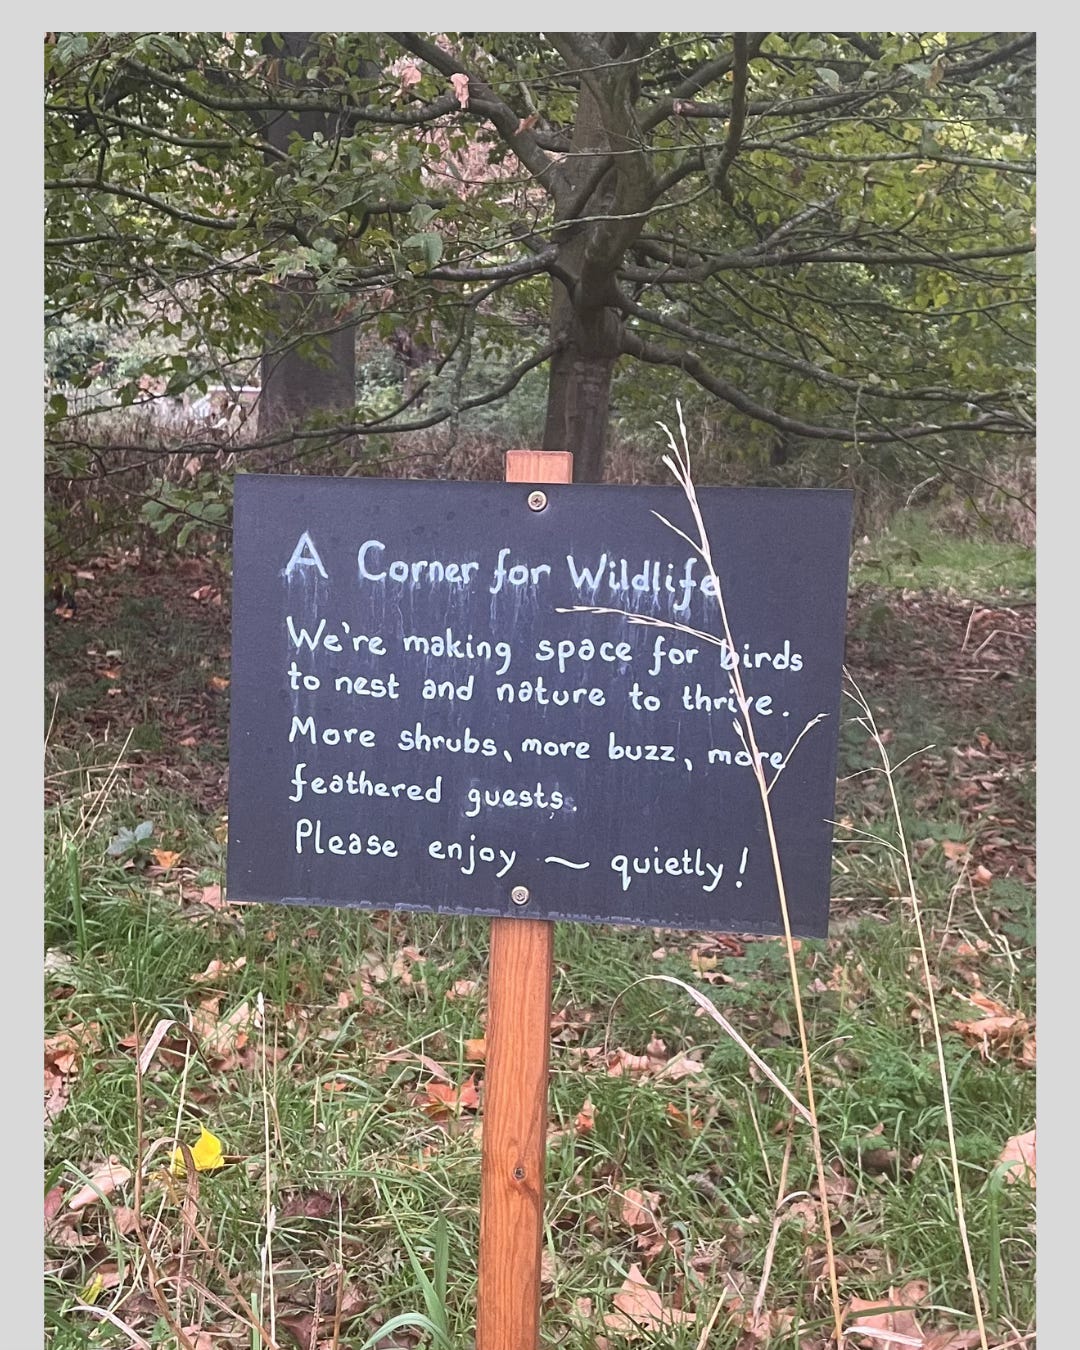 A Corner for Wildlife
We're making space for birds
to nest and nature to thrive.
More shrubs, more buzz, more
feathered guests.
Please enjoy ~ quietly!